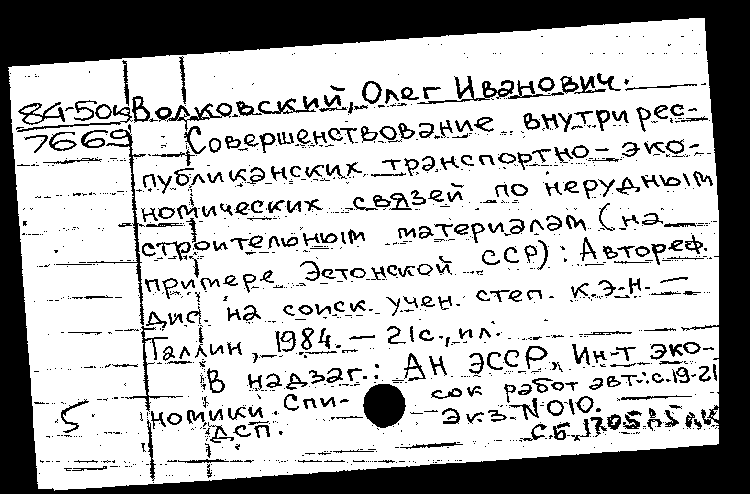 84-50к Волковский, Олег Иванович.
7669 Совершенствование внутрирес-
публиканских транспортно-эко-
номических связей по нерудным
строительным материалам (на
примере Эстонской ССР): Автореф.
дис. на соиск. учен. степ. к.э.н. —
Таллин, 1984. — 21с., ил.
В надзаг.: АН ЭССР, Ин-т эко-
номики. Спи- сок работ авт.: с.19-21
5 ДСП. Экз. N 010.
СБ, 17.05.85